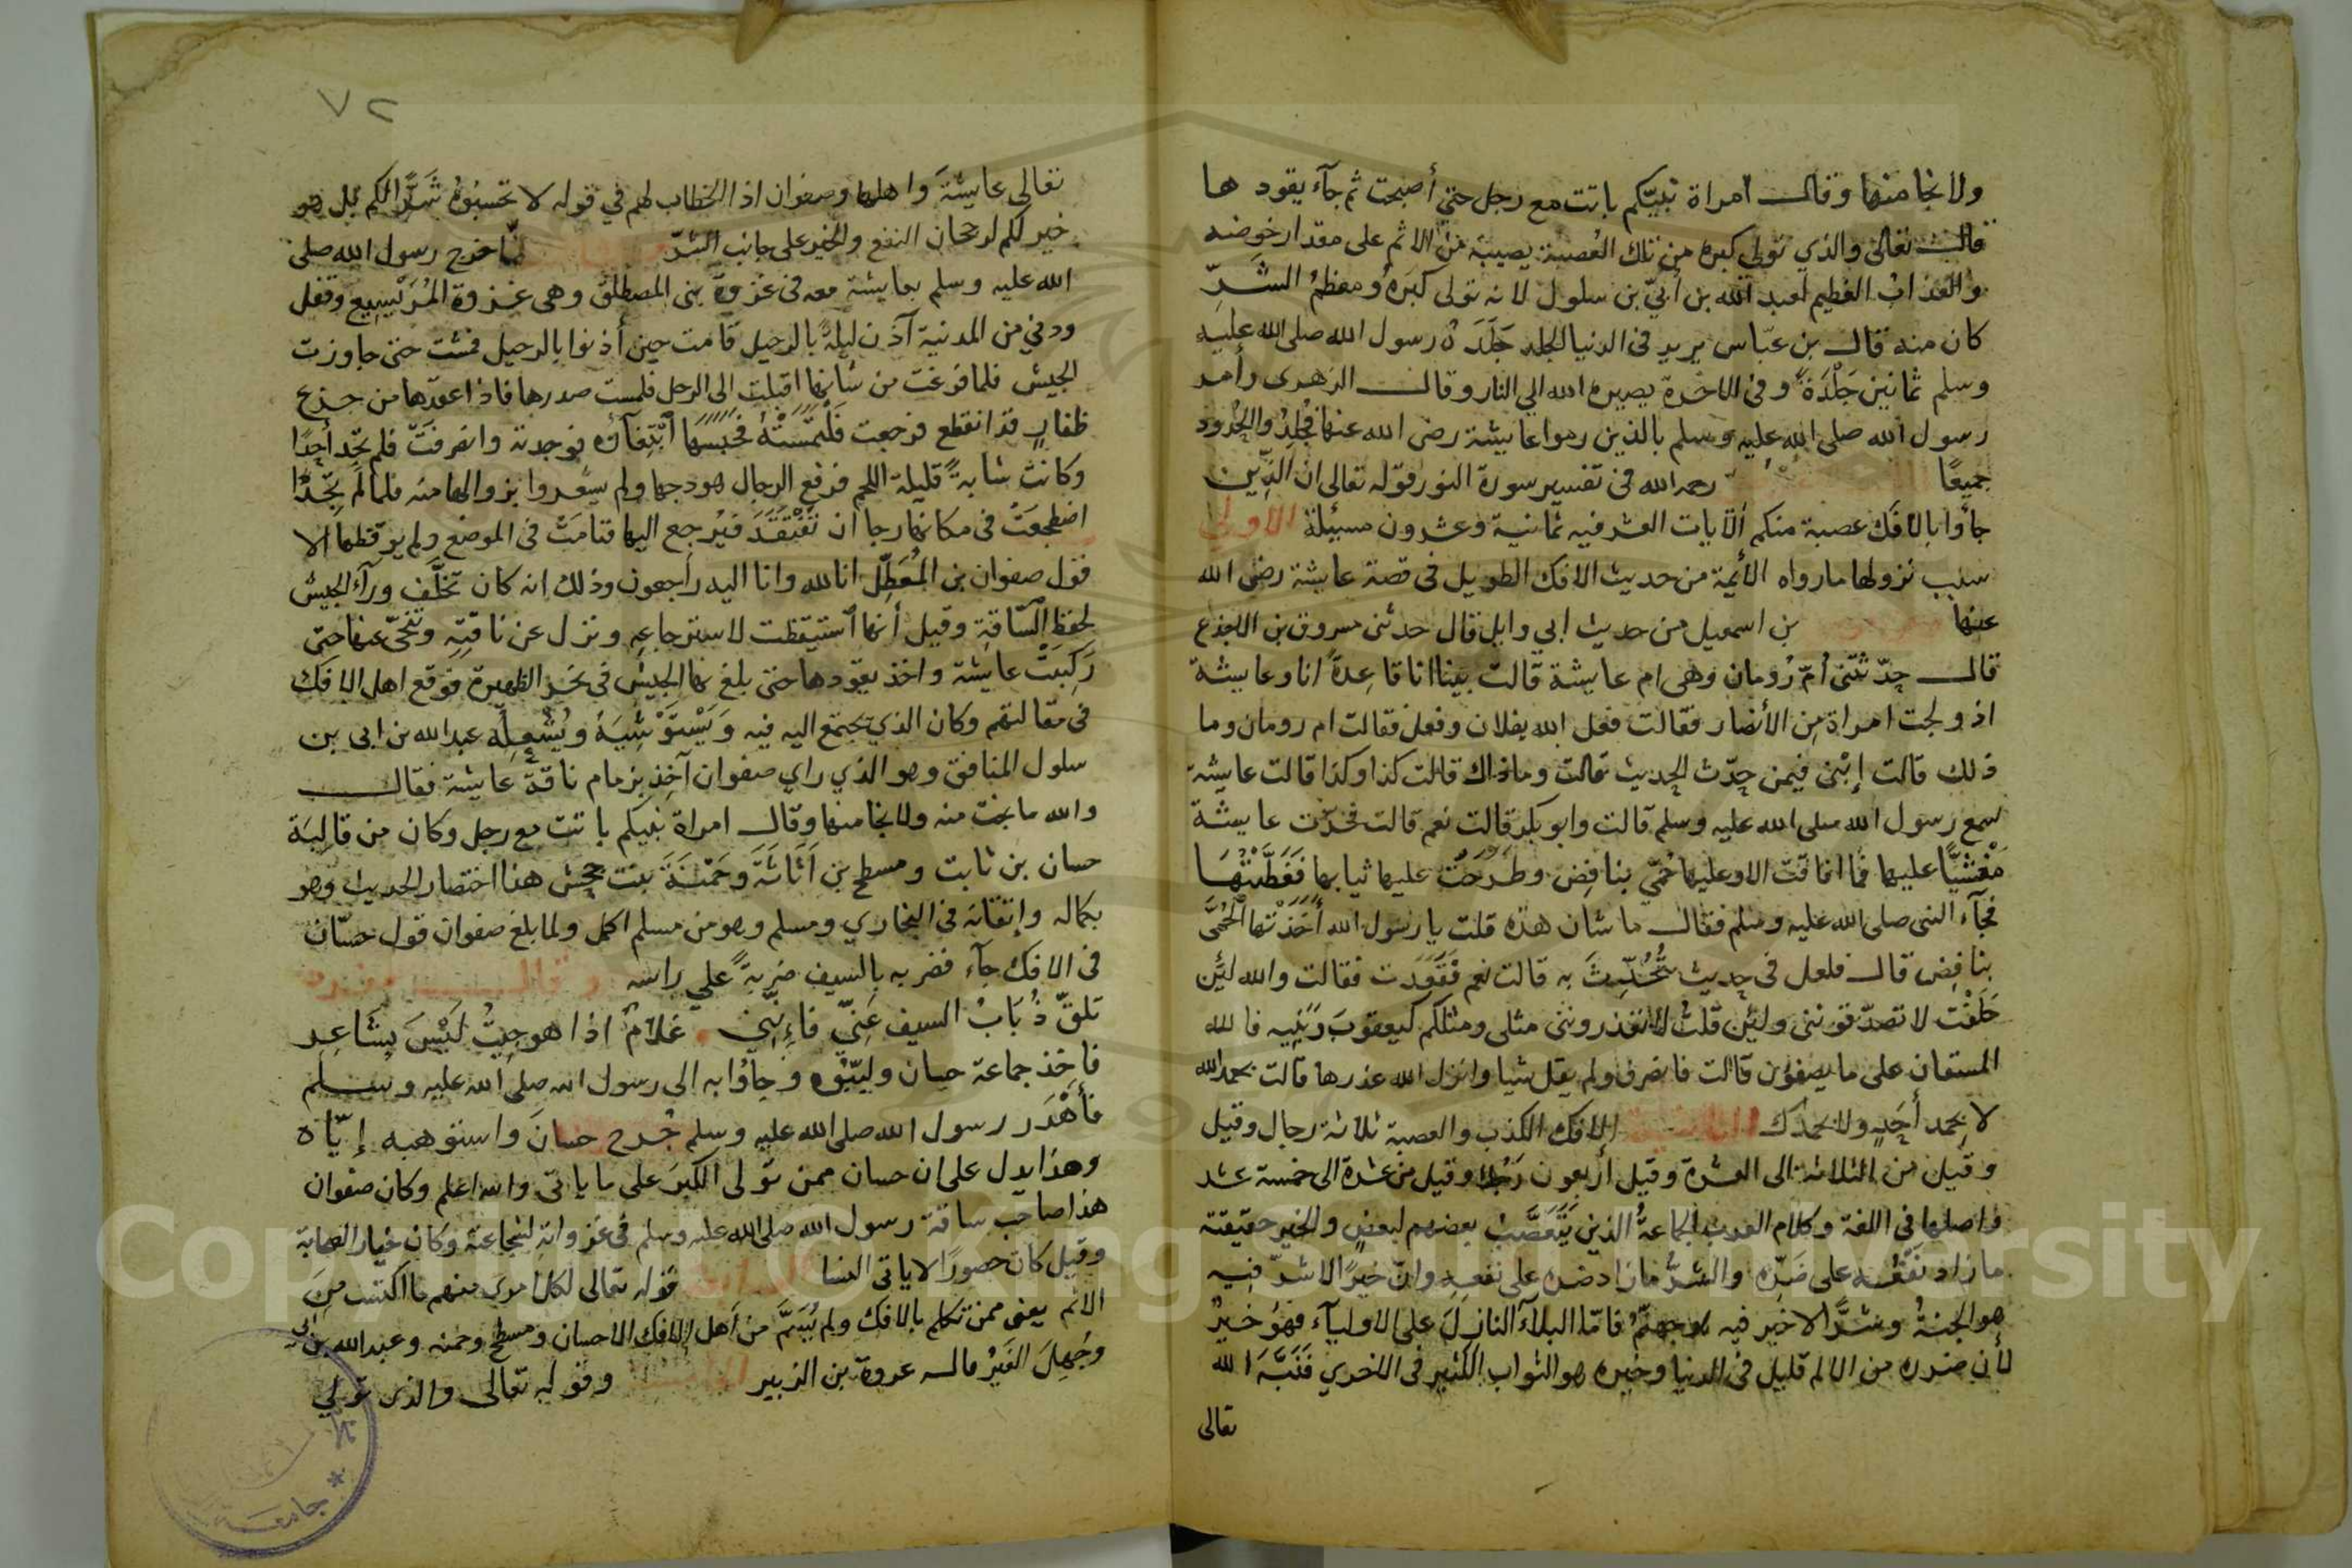 ولا نجا منها وقال امراة نبيّكم باتت مع رجل حتي أصبحت ثم جآء يقود ها
قال تعالى والذي تولى كبره من تلك العُصبة يصيبه من الاثم على مقدار خوضه
والعذابُ العظيم لعبد الله بن أبيّ بن سلول لانه تولى كبرَهُ ومعظمُ الشرِّ
كان منه قال بن عبّاس يريد في الدنيا الجلد جَلَدَهُ رسول الله صلى الله عليه
وسلم ثمانين جَلْدَةً وفي الاخرة يصيره الله الي النار وقال الزهرى وأمر
رسول الله صلى الله عليه وسلم بالذين رموا عايشة رضى الله عنها فجُلِدُوا الحُدود
جميعًا رحمه الله في تفسير سورة النور قوله تعالى ان الذين
جاؤا بالافك عصبة منكم الآيات العشر فيه ثمانية وعشرون مسئلة الاولي
سبب نزولها ما رواه الأئمة من حديث الافك الطويل في قصة عايشة رضى الله
عنها بن اسمعيل من حديث ابي وايل قال حدثنى مسروق بن الاجدع
قال حدّثتنى أمّ رُومان وهى ام عايشة قالت بينا انا قاعِدة انا وعايشة
اذ ولجت امراة من الأنصار فقالت فعل الله بفلان وفعل فقالت ام رومان وما
ذلك قالت إبْنى فيمن حدّث الحديث قالت وماذاك قالت كذا وكذا قالت عايشة
سمع رسول الله صلى الله عليه وسلم قالت وابو بكر قالت نعم قالت فخرّت عايشة
مَغْشيًّا عليها فما افاقت الا وعليها حُمّي بنافِض وطَرَحَتُ عليها ثيابها فَغَطَّيْتُهَا
فجآء النبى صلى الله عليه وسلم فقال ما شان هذه قلت يا رسول الله أخَذَتْها الحُمَّى
بنافِض قال فلعل فى حديث تُحُدِّثَ به قالت نعم فقَعَدَت فقالت والله لئِن
حَلَفْت لا تصدّقوننى ولئِن قلتُ لا تعذروننى مثلى ومثلكم كيعقوبَ وَبَنِيه فالله
المستعان على ما يصفون قالت فانصرف ولم يقل شيا وانزل الله عذرها قالت بحمد الله
لا بحمد أحَدٍ ولا بحمدك الثانية الافك الكذب والعصبة ثلاثة رجال وقيل
وقيل من الثلاثة الى العشرة وقيل أربعون رَجُلا وقيل من عشرة الى خمسة عشر
واصلها فى اللغة وكلام العرب الجماعةُ الذين يَتَعَصَّبُ بعضهم لبعضٍ والخير حقيقته
ما زاد نَفْعُه على ضَرِّه والشرُّ ما زاد ضره على نفعه وان خيرًا لا شرّ فيه
هو الجنةُ وشرًّا لا خير فيه هو جهنّمُ فامّا البلآءُ النازل على الاوليآء فهو خيرٌ
لأن ضرره من الالم قليل في الدنيا وخيره هو الثواب الكثير فى الاخرى فَنَبَّهَ الله
تعالى
٧٢
تعالى عايشةَ واهلها وصفوان اذ الخطاب لهم في قوله لا تحسبُوهُ شرًّا لكم بل هو
خير لكم لرجحان النفع والخير على جانب الشرّ لمّا خرج رسول الله صلى
الله عليه وسلم بعايشة معه فى غزوة بنى المصطلق وهى غزوة المُرَيْسِيع وقفل
ودني من المدنية آذن ليلةً بالرحيل قامت حين أذنوا بالرحيل فمشت حتى جاوزت
الجيش فلما فرغت من شانها اقبلت الى الرحل فلمست صدرها فاذا عقدها من جزع
ظفارٍ قد انقطع فرجعت فَلْتَمَسَتْهُ فَحَبَسَهَا ابْتِغَآؤه فوجدته وانصرفتْ فلم تجد أحدًا
وكانتْ شابةً قليلة اللحم فرفع الرجال هودجها ولم يشعروا بنزوالها منه فلما لم تجدًا
اضطجعَتْ فى مكانها رجا ان تُفْتَقَدَ فيُرجع اليها فنامَتْ فى الموضع ولم يوقظها الا
قول صفوان بن المُعطِّل انا لله وانا اليه راجعون وذلك انه كان تخلَّف ورآء الجيش
لحفظ السّاقة وقيل أنها استيقظت لاسترجاعه ونزل عن ناقتِه وتنحّى عنها حتى
رَكِبَتْ عايشة واخذ يقودها حتى بلغ بها الجيش فى نحر الظهيرة فوقع اهل الافك
فى مقالتهم وكان الذي يجتمع اليه فيه وَيَسْتَوْشِيَهُ ويُشْعِلُه عبد الله بن ابى بن
سلول المنافق وهو الذي راي صفوان آخِذ بزمام ناقة عايشة فقال
والله ما نجت منه ولا نجا منها وقال امراة نبيكم باتت مع رجل وكان من قالبَة
حسان بن ثابت ومسطح بن اَثاثَةَ وحَمْنَةَ بنت جحش هذا اختصار الحديث وهو
بكماله وإتقانه فى البخاري ومسلم وهو من مسلم اكمل ولما بلغ صفوان قول حسّان
فى الافك جآء فضربه بالسيف ضربةً علي راسه وقال
تلقّ ذُبَابُ السيف عَنِيّ فاءِنّني غلامٌ اذا هوجِيتُ لَيْسَ بِشَاعِر
فاخذ جماعة حسان ولببّوه وجاؤا به الى رسول الله صلى الله عليه وسلم
فأهْدَر رسول الله صلى الله عليه وسلم جُرح حسانَ واستوهبه إيّاه
وهذا يدل على ان حسان ممن تولى الكبرَ على ما ياتى والله اعلم وكان صفوان
هذا صاحب ساقة رسول الله صلى الله عليه وسلم فى غزواته لشجاعته وكان خيار الصحابة
وقيل كان حصورًا لا ياتى النسا قوله تعالى لكل امرئ منهم ما اكتسب من
الاثم يعنى ممن تكلم بالافك ولم يُسَمَّ من أهل الافك الا حسان ومسطح وحمنه وعبد الله بن ابى
وجُهِلَ الغَيْرُ قاله عروة بن الزبير وقوله تعالى والذى تولي
جامعة
Copyright © King Saud University